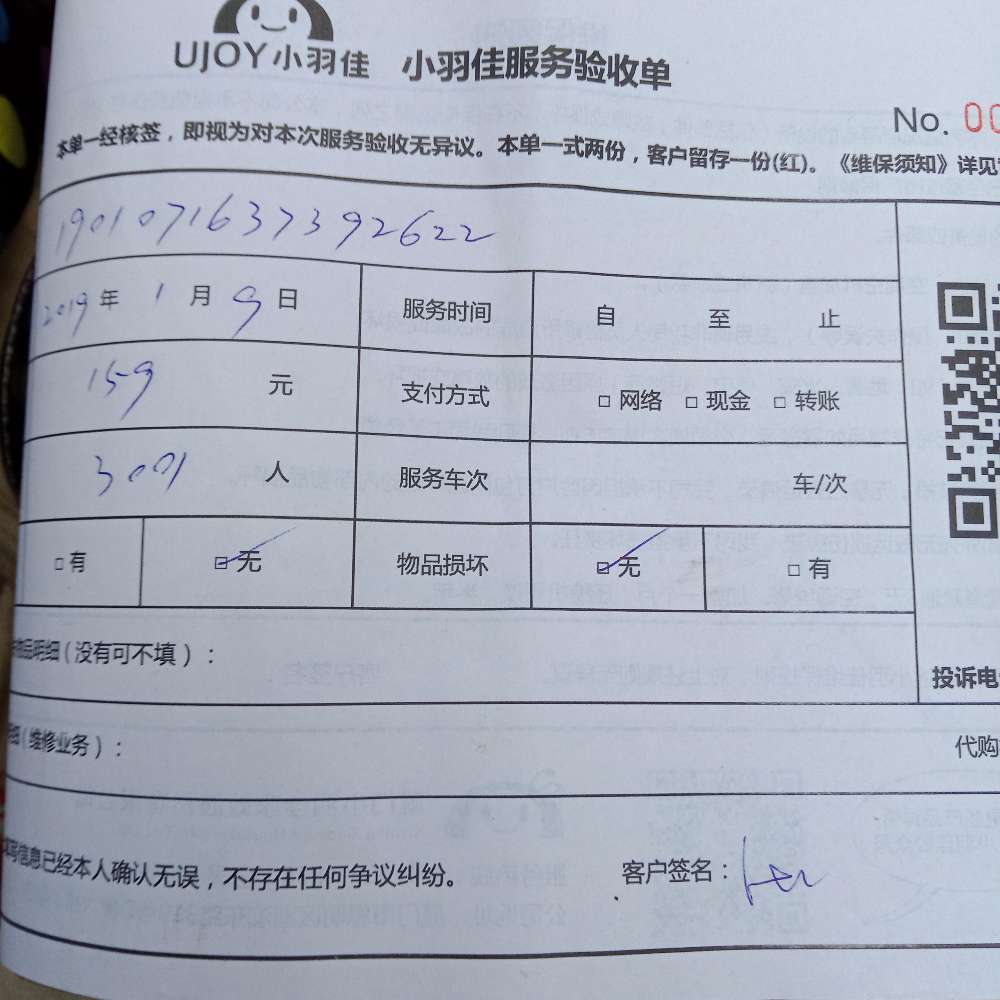 UJOY小羽佳 小羽佳服务验收单
No. 00
本单一经核签，即视为对本次服务验收无异议。本单一式两份，客户留存一份(红)。《维保须知》详见
1901071637392622
2019 年 1 月 9 日 服务时间 自 至 止
159 元 支付方式 □ 网络 □ 现金 □ 转账
人 服务车次 车/次
□ 有 ☑ 无 物品损坏 ☑ 无 □ 有
物品明细（没有可不填）：
投诉电
（维修业务）：
代购
信息已经本人确认无误，不存在任何争议纠纷。 客户签名：